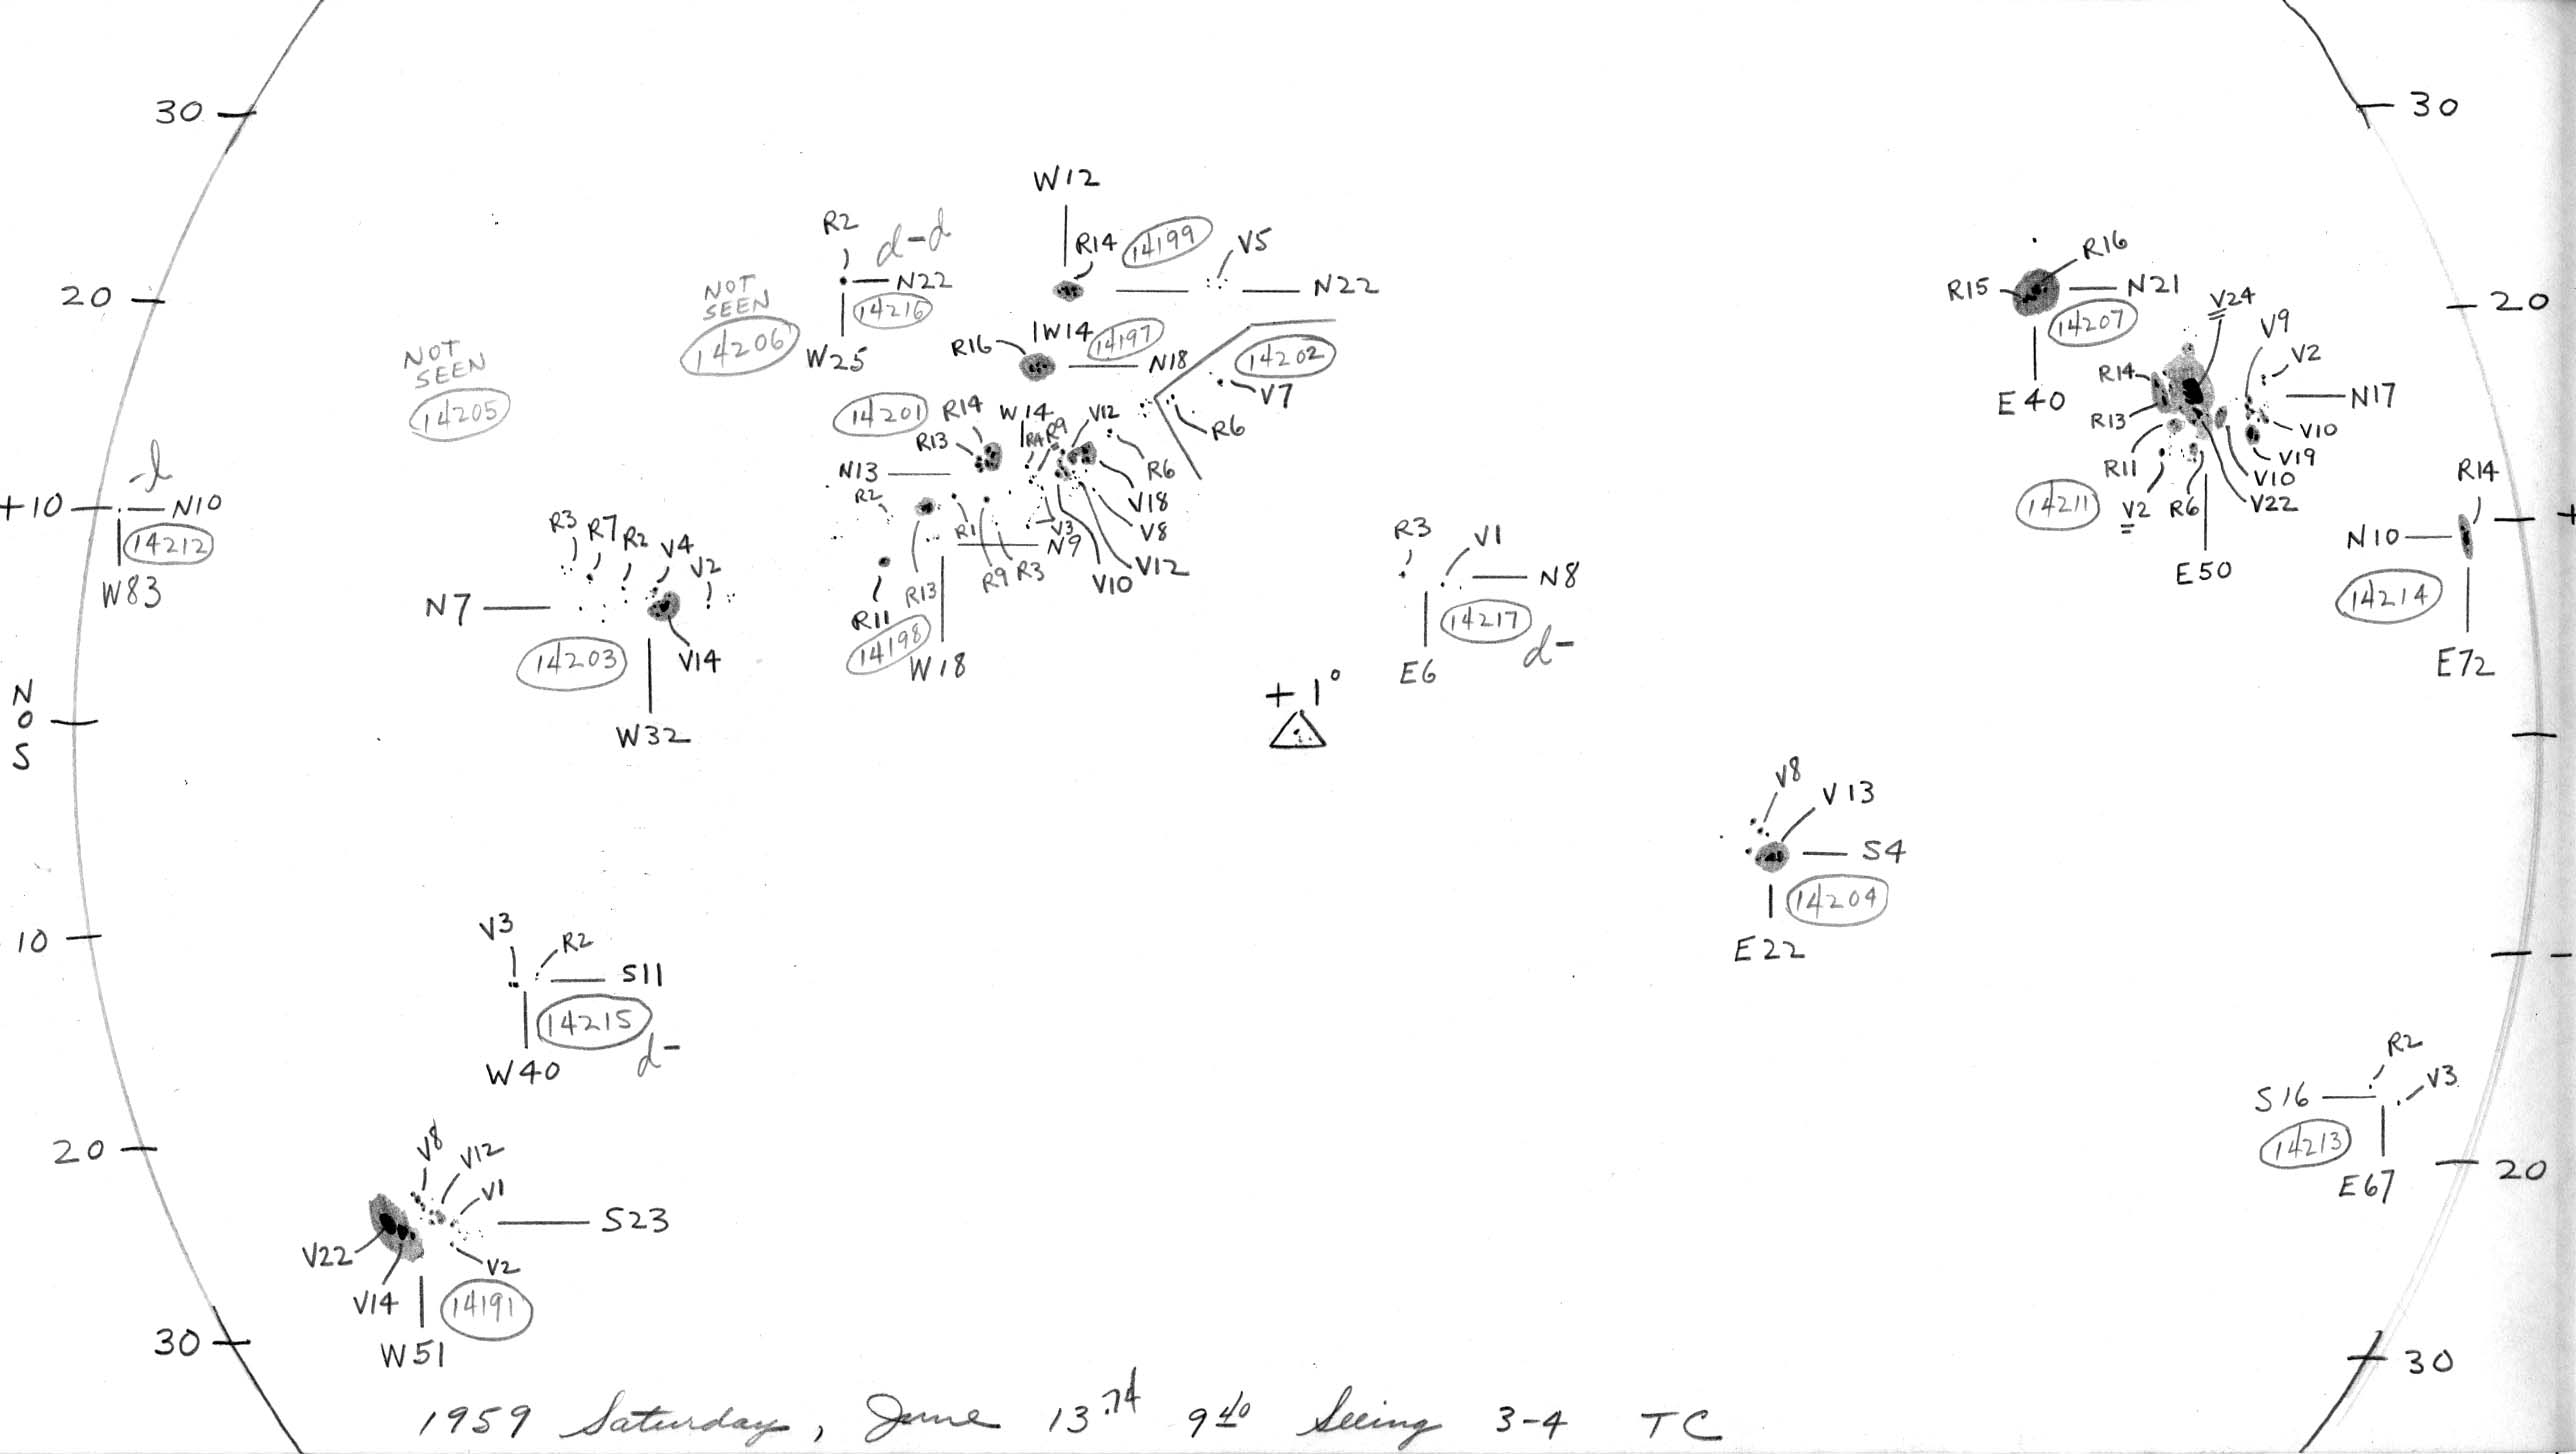 30
30
W12
R2
d-d
R14
14199
V5
R16
NOT
SEEN
N22
N22
R15
N21
V24
20
14216
20
14206
W25
R16
W14
14197
N18
14202
14207
V9
V2
NOT
SEEN
14205
V7
R14
E40
N17
14201
R14
W14
V12
R6
R13
V10
R13
R4
R9
R11
V19
N13
R6
V10
R14
-l
R2
V18
14211
V2
R6
V22
+10
N10
R3
R7
R2
V4
V2
R1
V3
V8
R3
V1
+
14212
N9
N10
W83
R9
R3
V10
V12
N8
E50
N7
R13
R11
14217
14214
14203
V14
14198
W18
E6
d-
E72
N
0
S
+1°
W32
V8
V13
S4
14204
10
V3
R2
E22
-
S11
14215
W40
d-
R2
V3
S16
20
V8
V12
14213
20
V1
E67
S23
V22
V2
V14
14191
30
W51
30
1959 Saturday, June 13.74 9 40 Seeing 3-4 TC